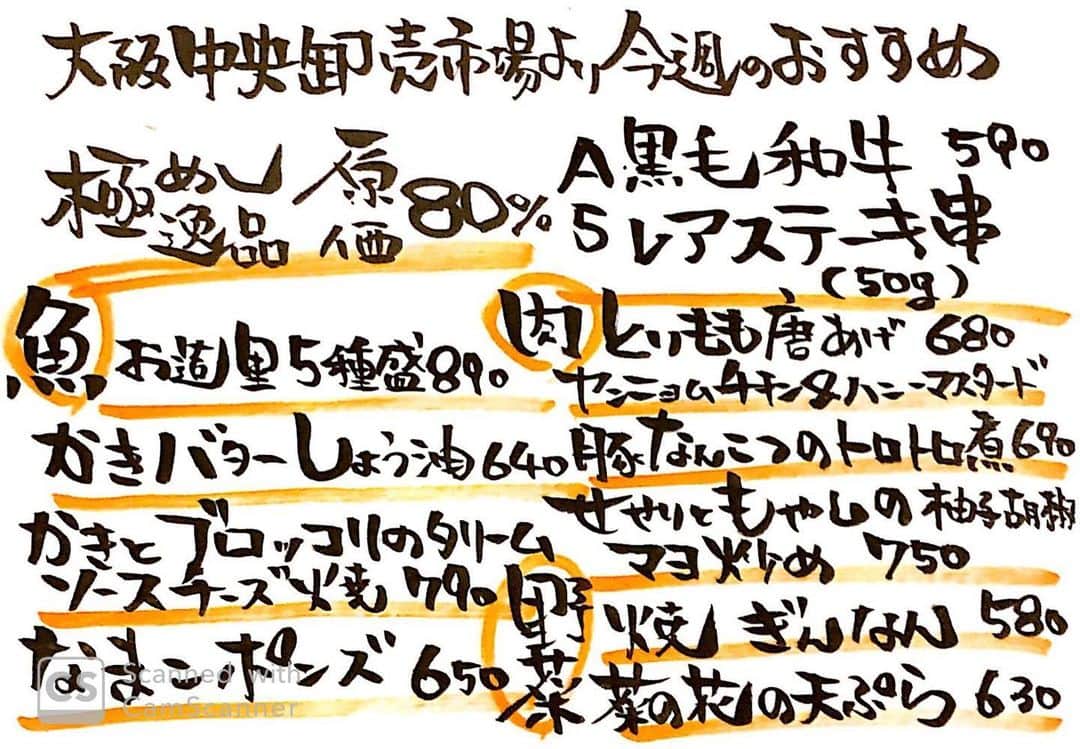 大阪中央卸売市場より今週のおすすめ
極めし逸品 原価80%
A5 黒毛和牛 590
レアステーキ串
(50g)
魚
お造り 5種盛 890
かきバターしょう油 640
かきとブロッコリのクリーム
ソースチーズ焼 790
なまこポンズ 650
肉
とりもも唐あげ 680
ヤンニョムチキン&ハニーマスタード
豚なんこつのトロトロ煮 690
せせりともやしの柚子胡椒
マヨ炒め 750
野菜
焼ぎんなん 580
菜の花の天ぷら 630
CS Scanned with
CamScanner